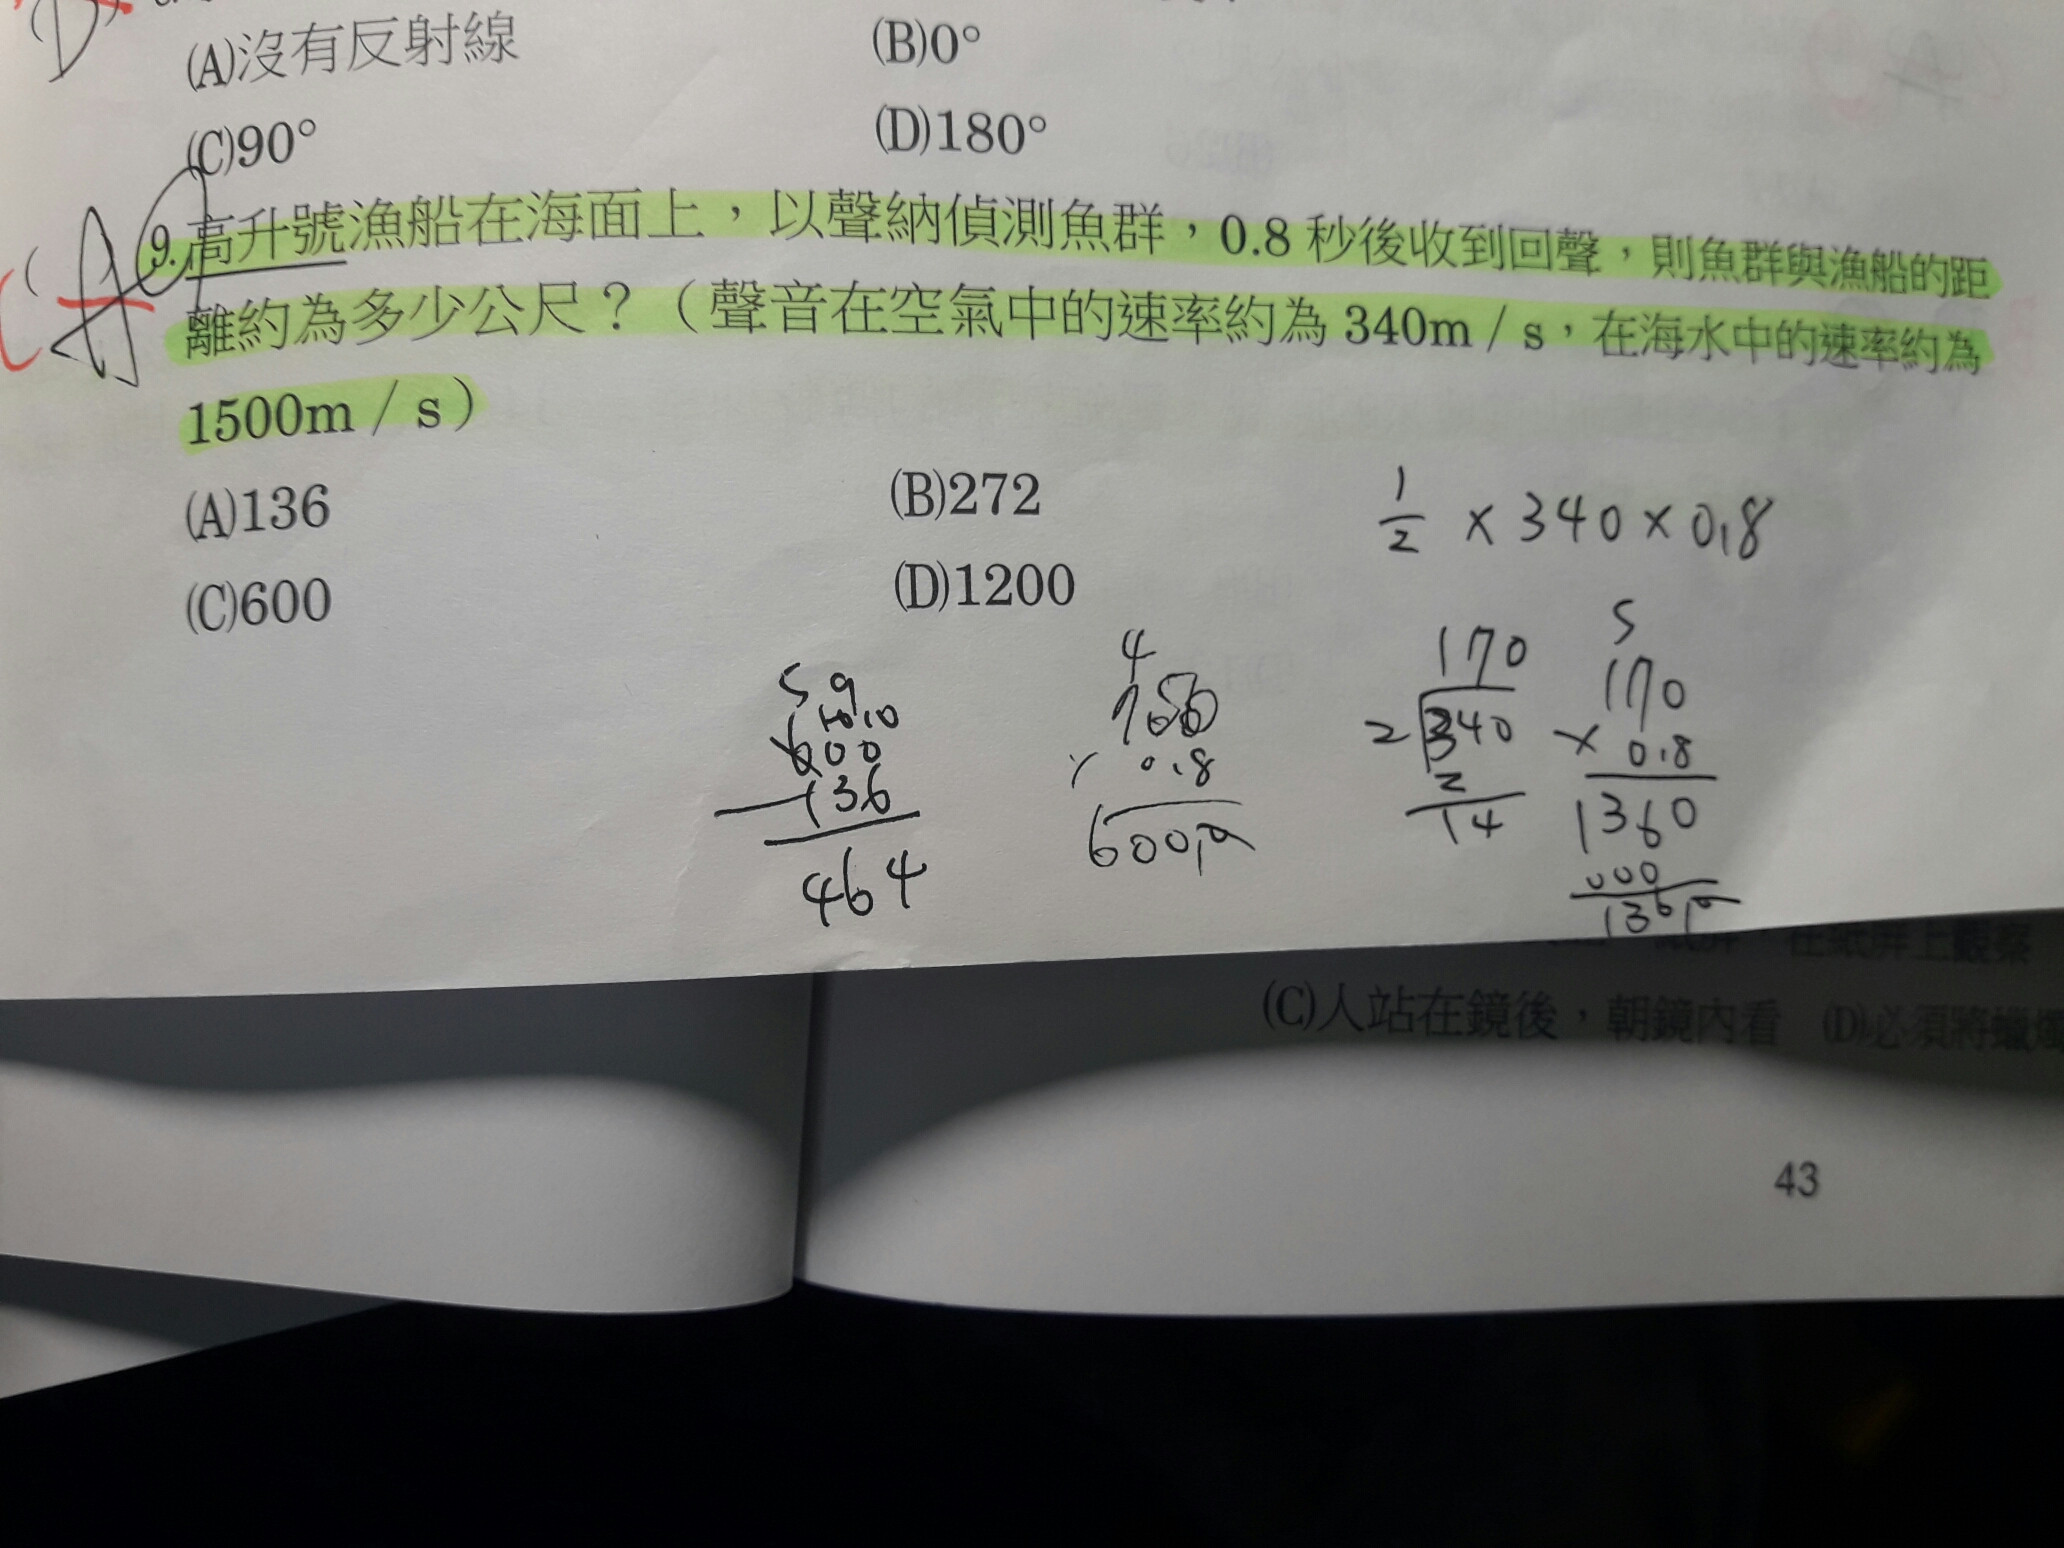 (A)沒有反射線 (B)0°
(C)90° (D)180°
9.高升號漁船在海面上，以聲納偵測魚群，0.8 秒後收到回聲，則魚群與漁船的距
離約為多少公尺？（聲音在空氣中的速率約為 340m / s，在海水中的速率約為
1500m / s）
(A)136 (B)272
(C)600 (D)1200
1/2 × 340 × 0.8
5 9
10 10
600
- 136
464
4
× 0.8
600.0
170
2 340
2
14
5
170
× 0.8
1360
000
136.0
在紙屏上觀察
(C)人站在鏡後，朝鏡內看 (D)必須將蠟燭
43